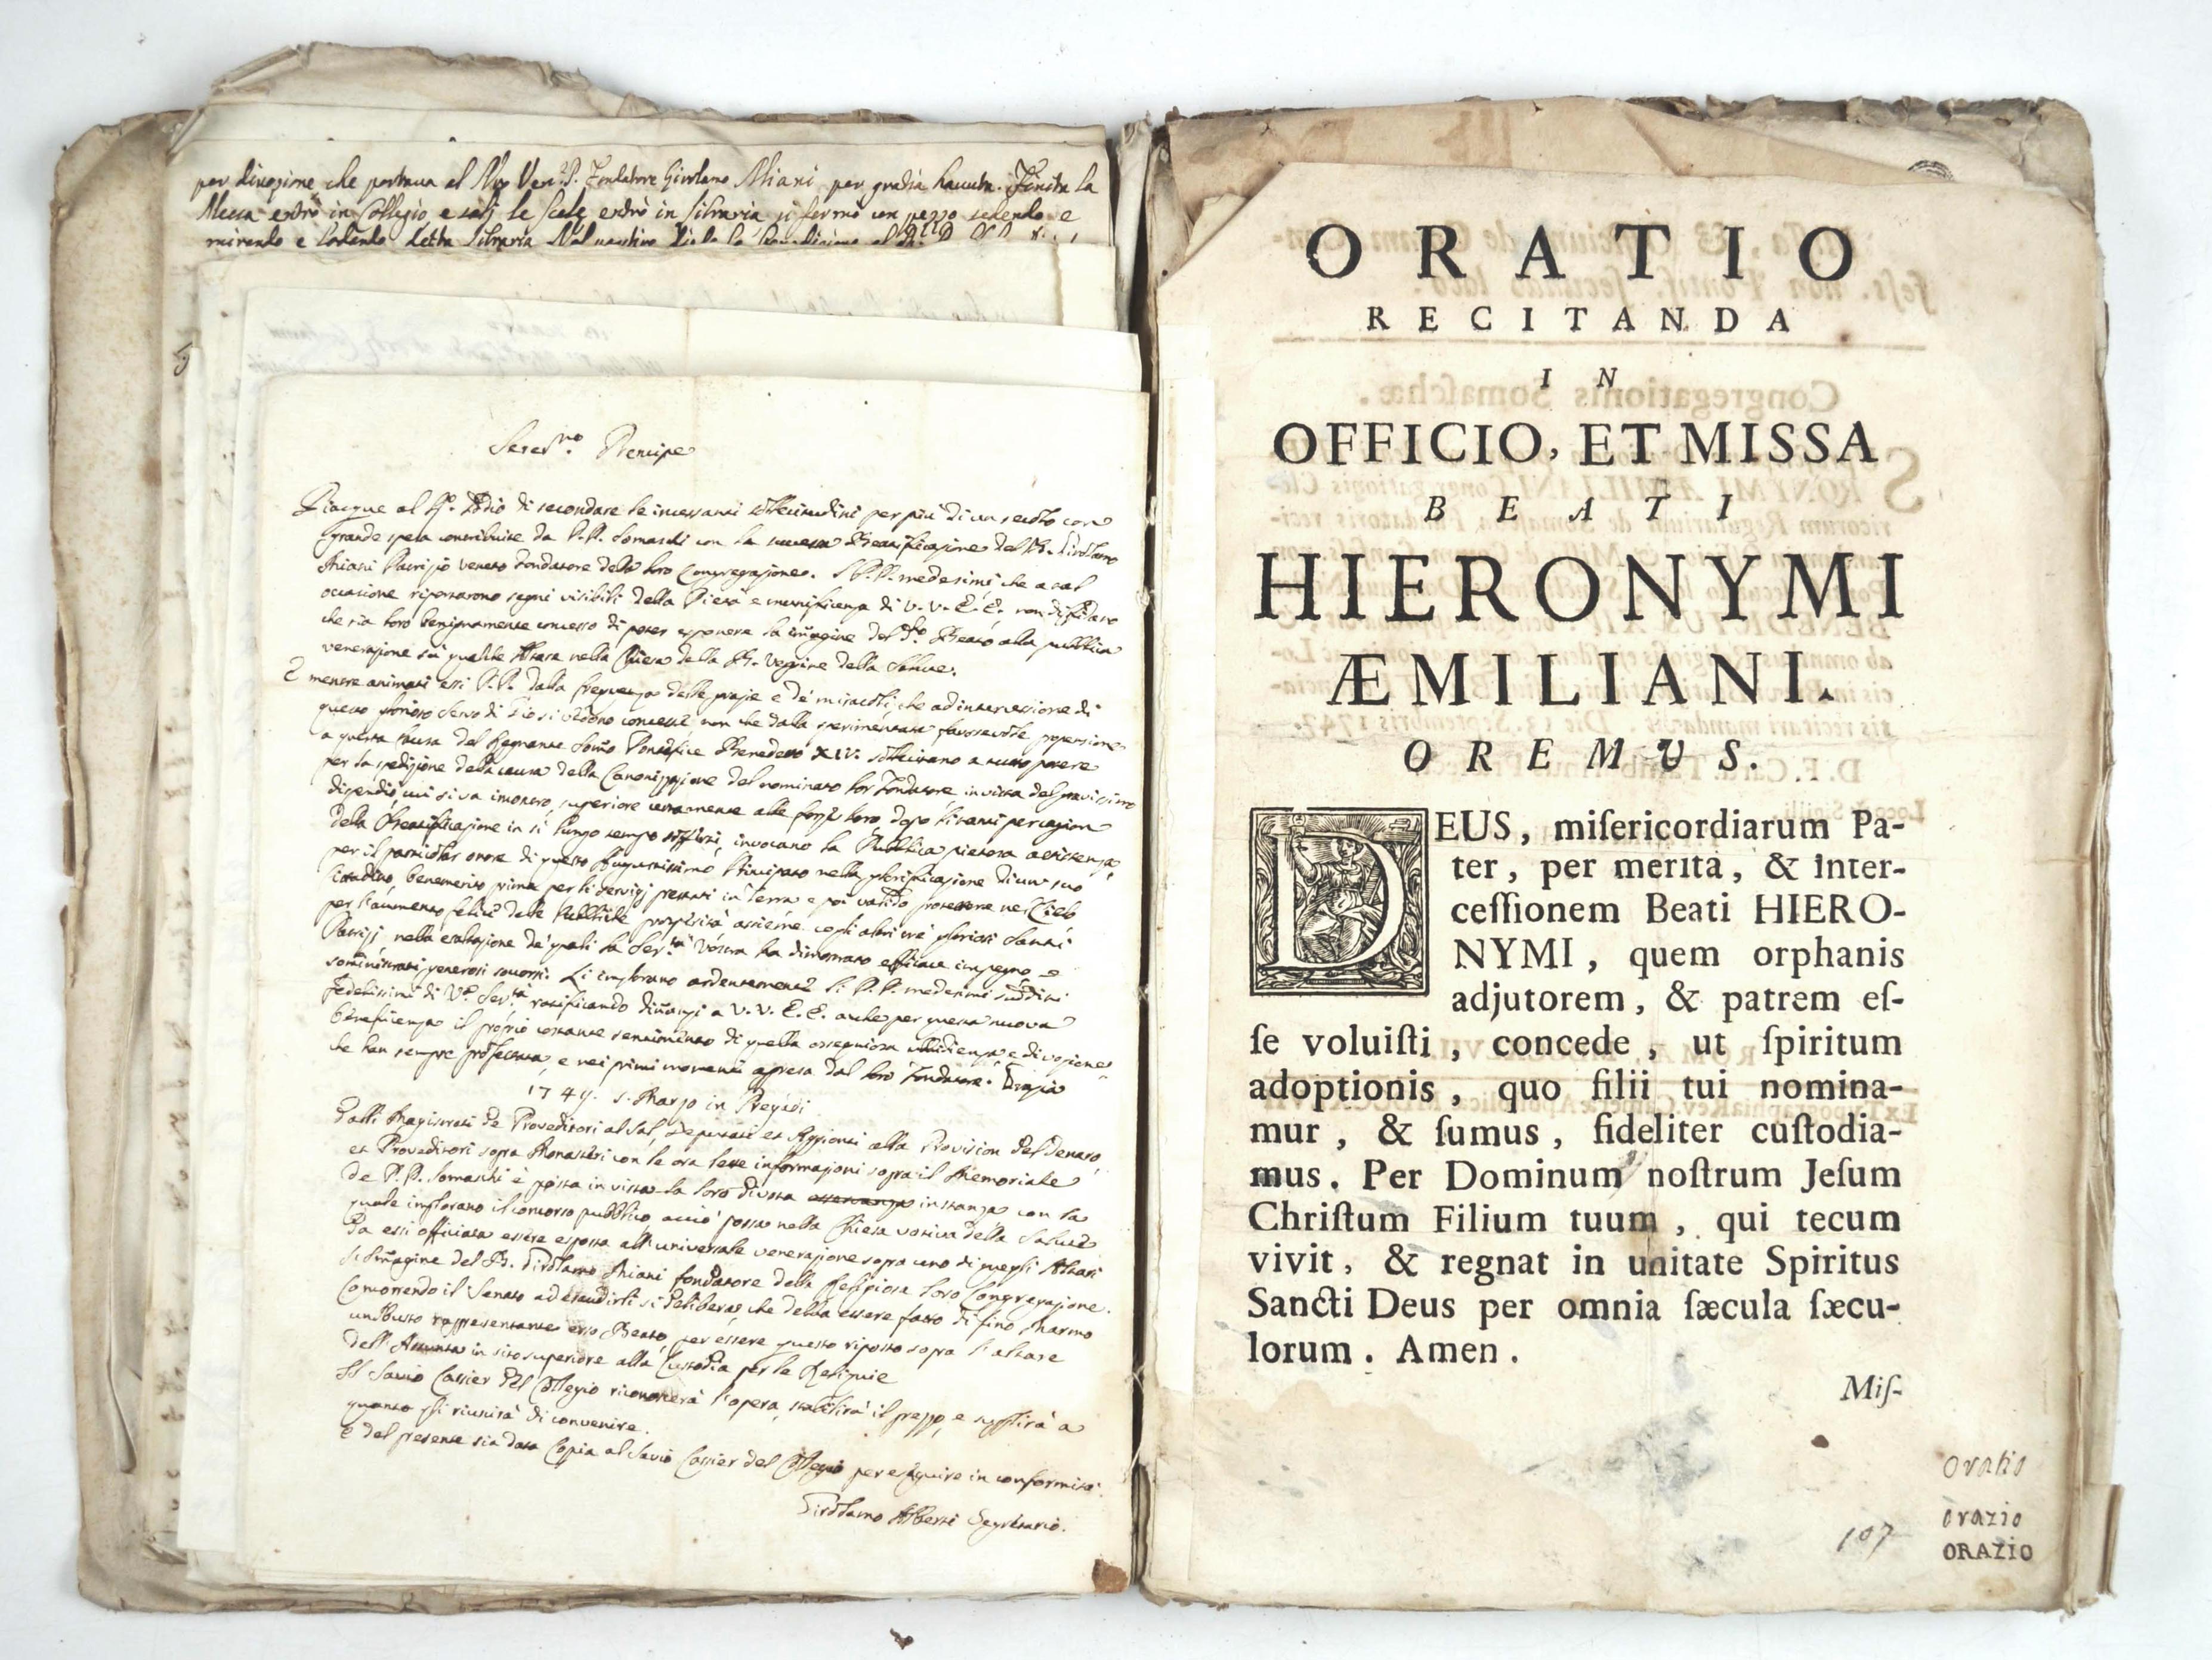 per divozione che portava al Nro Ven. P. Fondatore Girolamo Miani per gratia havuta. Finita la
Messa entrò in Collegio, e salì le Scale entrò in libraria si fermò un pezzo sedendo e
mirando e lodando detta libraria
Seren.mo Prencipe
Piacque al Sig. Iddio di secondare le incessanti sollecitudini per più di un secolo con
grande spesa contribuite da P.P. Somaschi con la Beatificazione del B. Girolamo
Miani Patrizio veneto Fondatore della loro Congregazione. I P.P. medesimi che a tal
occasione riportarono segni visibili della Pietà e munificenza di V.V. E.E. non diffidano
che sia loro benignamente concesso di poter esponere la immagine del do Beato alla pubblica
venerazione su qualche Altare nella Chiesa della B. Vergine della Salute.
E mentre animati essi P.P. dalla frequenza delle grazie e de' miracoli, che ad intercessione di
questo glorioso Servo di Dio si vedono concesse non che dalla sperimentata favorevole propensione
a questa Causa del Regnante Somo Pontefice Benedetto XIV. sollecitano a tutto potere
per la spedizione della causa della Canonizzazione del nominato lor Fondatore in vista del gravissimo
dispendio, cui si va incontro, superiore certamente alle forze loro dopo li tanti per cagion
della Beatificazione in sì lungo tempo sofferti, invocano la Pubblica pietosa assistenza
per il particolar onore di questo Augustissimo Principato nella glorificazione di un suo
Cittadino, benemerito prima per li servigj prestati in Terra e poi valido protettore nel Cielo
per l'aumento felice delle Pubbliche prosperità assieme cogli altri tre gloriosi Santi
Patrizj nella esaltazione de' quali la Ser.tà Vostra ha dimostrato efficace impegno e
somministrati generosi soccorsi. Li implorano ardentemente li P.P. medesimi sudditi
fedelissimi di V.a Ser.tà ratificando dinanzi a V.V. E.E. anche per questa nuova
beneficenza il proprio costante sentimento di quella ossequiosa ubbidienza e divozione,
che han sempre professata, e nei primi momenti appresa dal loro Fondatore. Grazie
1749. 5. Marzo in Pregadi
Dalli Magistrati de Proveditori al Sal, Deputati et Aggionti alla Provision del Denaro,
et Proveditori sopra Monasteri con le ora lette informazioni sopra il Memoriale
de P.P. Somaschi è posta in vista la loro divota instanza con la
quale implorano il concorso pubblico, acciò possa nella Chiesa votiva della Salute
da essi officiata essere esposta all'universale venerazione sopra uno di quegli Altari
l'Immagine del B. Girolamo Miani fondatore della Religiosa loro Congregazione.
Concorrendo il Senato ad esaudirli si delibera, che debba essere fatto di fino Marmo
un Busto rappresentante esso Beato, per essere questo riposto sopra l'altare
dell'Assunta in sito superiore alla Custodia per le Reliquie
Il Savio Cassier del Collegio riconoscerà l'opera, stabilirà il prezzo, e supplirà a
quanto gli riuscirà di convenire.
E del presente sia data Copia al Savio Cassier del Collegio per eseguire in conformità.
Girolamo Alberti Segretario.
ORATIO
RECITANDA
IN
OFFICIO, ET MISSA
BEATI
HIERONYMI
ÆMILIANI.
OREMUS.
DEUS, miſericordiarum Pa-
ter, per merita, & inter-
ceſſionem Beati HIERO-
NYMI, quem orphanis
adjutorem, & patrem eſ-
ſe voluiſti, concede, ut ſpiritum
adoptionis, quo filii tui nomina-
mur, & ſumus, fideliter cuſtodia-
mus. Per Dominum noſtrum Jeſum
Chriſtum Filium tuum, qui tecum
vivit, & regnat in unitate Spiritus
Sancti Deus per omnia ſæcula ſæcu-
lorum. Amen.
Miſ-
Oratio
107
orazio
ORAZIO